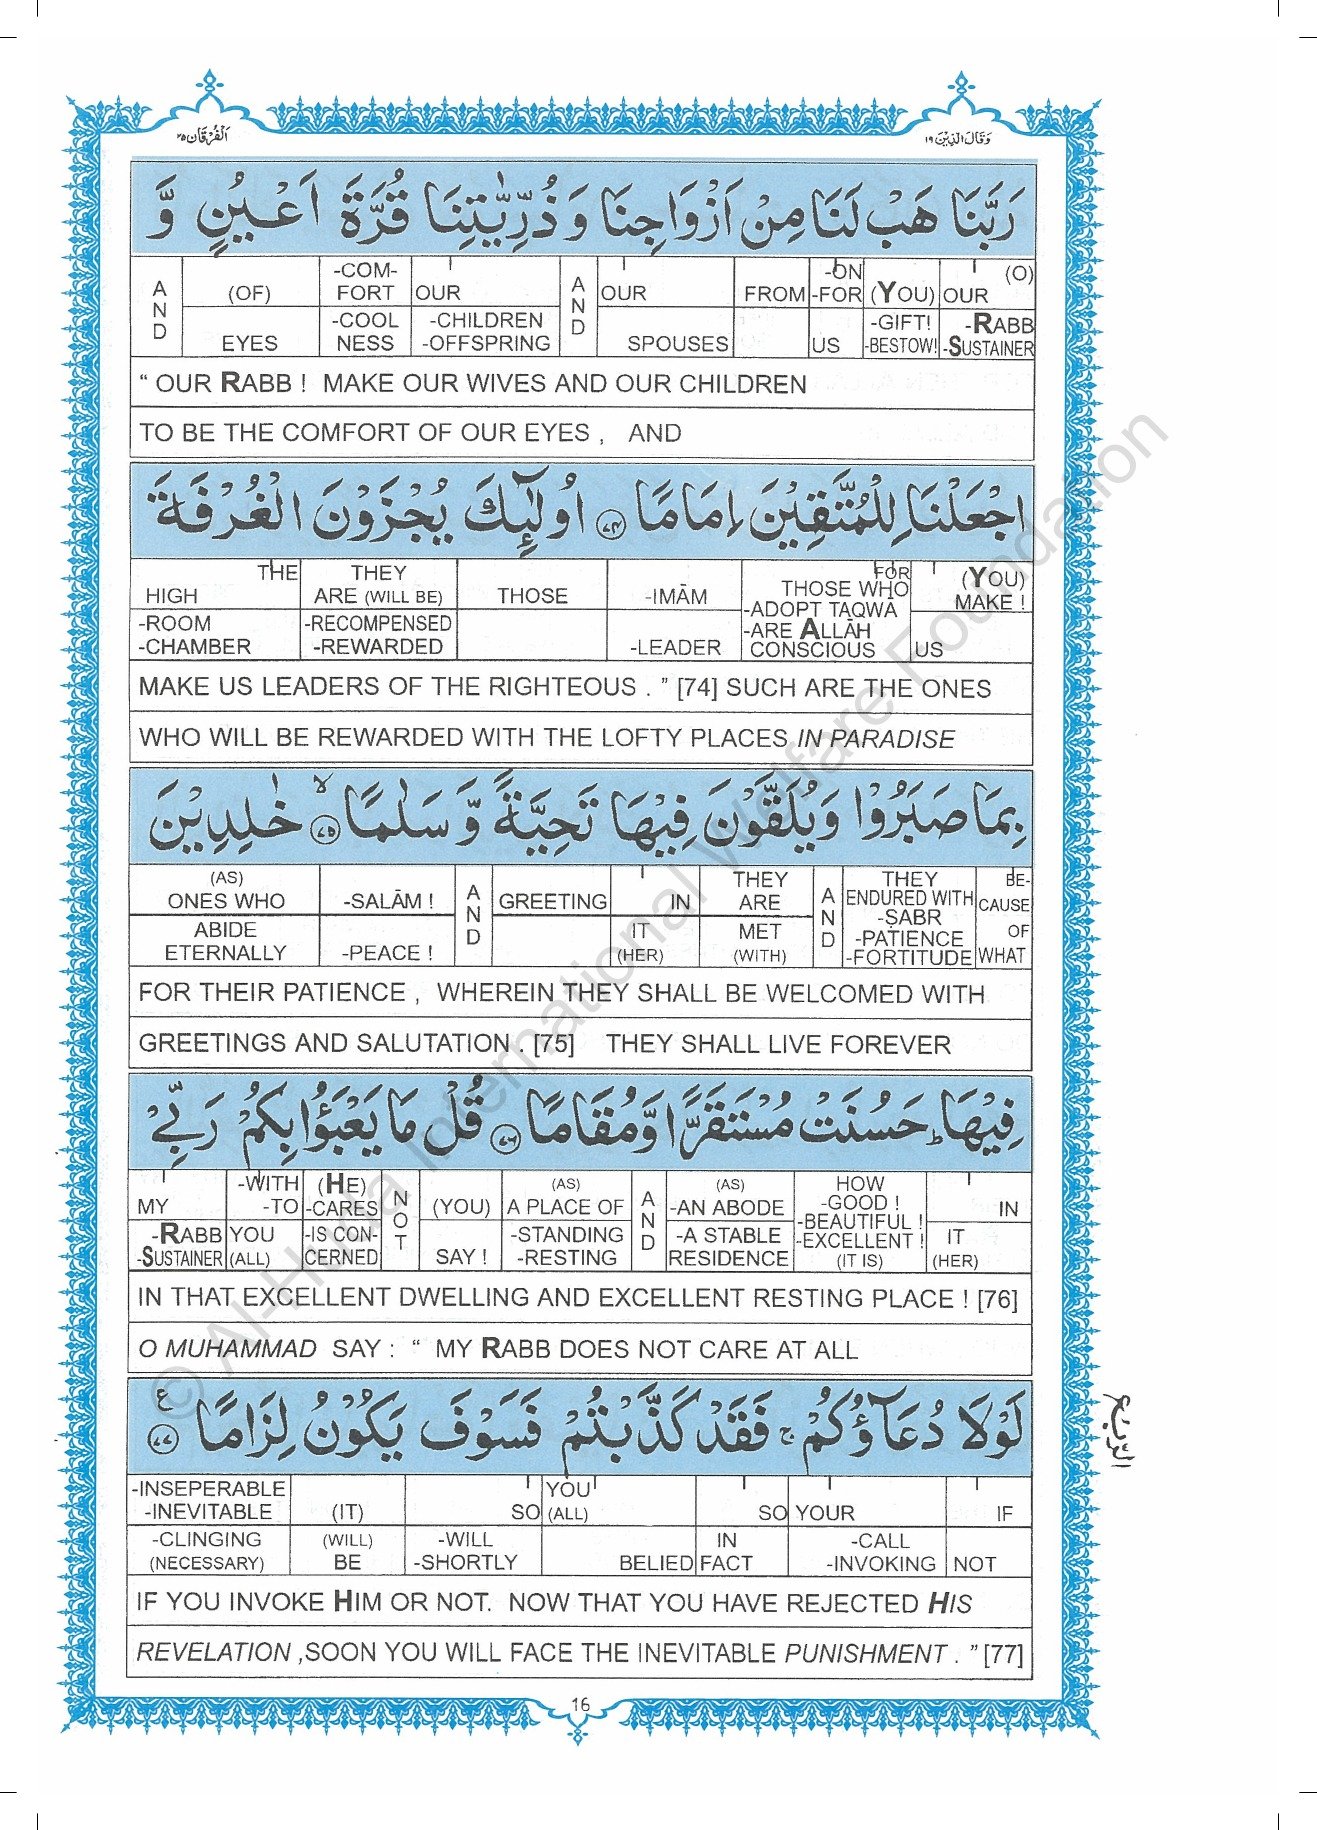 اَلْفُرْقَان ۲۵
وَقَالَ الَّذِيْنَ ۱۹
رَبَّنَا هَبْ لَنَا مِنْ اَزْوَاجِنَا وَ ذُرِّيّٰتِنَا قُرَّةَ اَعْيُنٍ وَّ
AND (OF) -COM- FORT OUR AND OUR FROM -ON -FOR (YOU) OUR (O)
EYES -COOL NESS -CHILDREN -OFFSPRING SPOUSES US -GIFT! -BESTOW! -RABB -SUSTAINER
“ OUR RABB ! MAKE OUR WIVES AND OUR CHILDREN
TO BE THE COMFORT OF OUR EYES , AND
اجْعَلْنَا لِلْمُتَّقِيْنَ اِمَامًا ﴿۷۴﴾ اُولٰٓئِكَ يُجْزَوْنَ الْغُرْفَةَ
HIGH THE THEY ARE (WILL BE) THOSE -IMĀM FOR THOSE WHO (YOU) MAKE !
-ROOM -CHAMBER -RECOMPENSED -REWARDED -LEADER -ADOPT TAQWĀ -ARE ALLĀH CONSCIOUS US
MAKE US LEADERS OF THE RIGHTEOUS . ” [74] SUCH ARE THE ONES
WHO WILL BE REWARDED WITH THE LOFTY PLACES IN PARADISE
بِمَا صَبَرُوْا وَيُلَقَّوْنَ فِيْهَا تَحِيَّةً وَّ سَلٰمًا ﴿۷۵﴾ۙ خٰلِدِيْنَ
(AS) ONES WHO -SALĀM ! AND GREETING IN THEY ARE AND THEY ENDURED WITH BE- CAUSE
ABIDE ETERNALLY -PEACE ! IT (HER) MET (WITH) -ṢABR -PATIENCE -FORTITUDE OF WHAT
FOR THEIR PATIENCE , WHEREIN THEY SHALL BE WELCOMED WITH
GREETINGS AND SALUTATION . [75] THEY SHALL LIVE FOREVER
فِيْهَا ؕ حَسُنَتْ مُسْتَقَرًّا وَّمُقَامًا ﴿۷۶﴾ قُلْ مَا يَعْبَؤُا بِكُمْ رَبِّيْ
MY -WITH -TO (HE) -CARES NOT (YOU) (AS) A PLACE OF AND (AS) -AN ABODE HOW -GOOD ! IN
-RABB -SUSTAINER YOU (ALL) -IS CON- CERNED SAY ! -STANDING -RESTING -A STABLE RESIDENCE -BEAUTIFUL ! -EXCELLENT ! (IT IS) IT (HER)
IN THAT EXCELLENT DWELLING AND EXCELLENT RESTING PLACE ! [76]
O MUHAMMAD SAY : “ MY RABB DOES NOT CARE AT ALL
لَوْلَا دُعَآؤُكُمْ ۚ فَقَدْ كَذَّبْتُمْ فَسَوْفَ يَكُوْنُ لِزَامًا ﴿۷۷﴾ ع
-INSEPERABLE -INEVITABLE (IT) SO YOU (ALL) SO YOUR IF
-CLINGING (NECESSARY) (WILL) BE -WILL -SHORTLY BELIED IN FACT -CALL -INVOKING NOT
IF YOU INVOKE HIM OR NOT. NOW THAT YOU HAVE REJECTED HIS
REVELATION ,SOON YOU WILL FACE THE INEVITABLE PUNISHMENT . ” [77]
16
© Al-Huda International Welfare Foundation